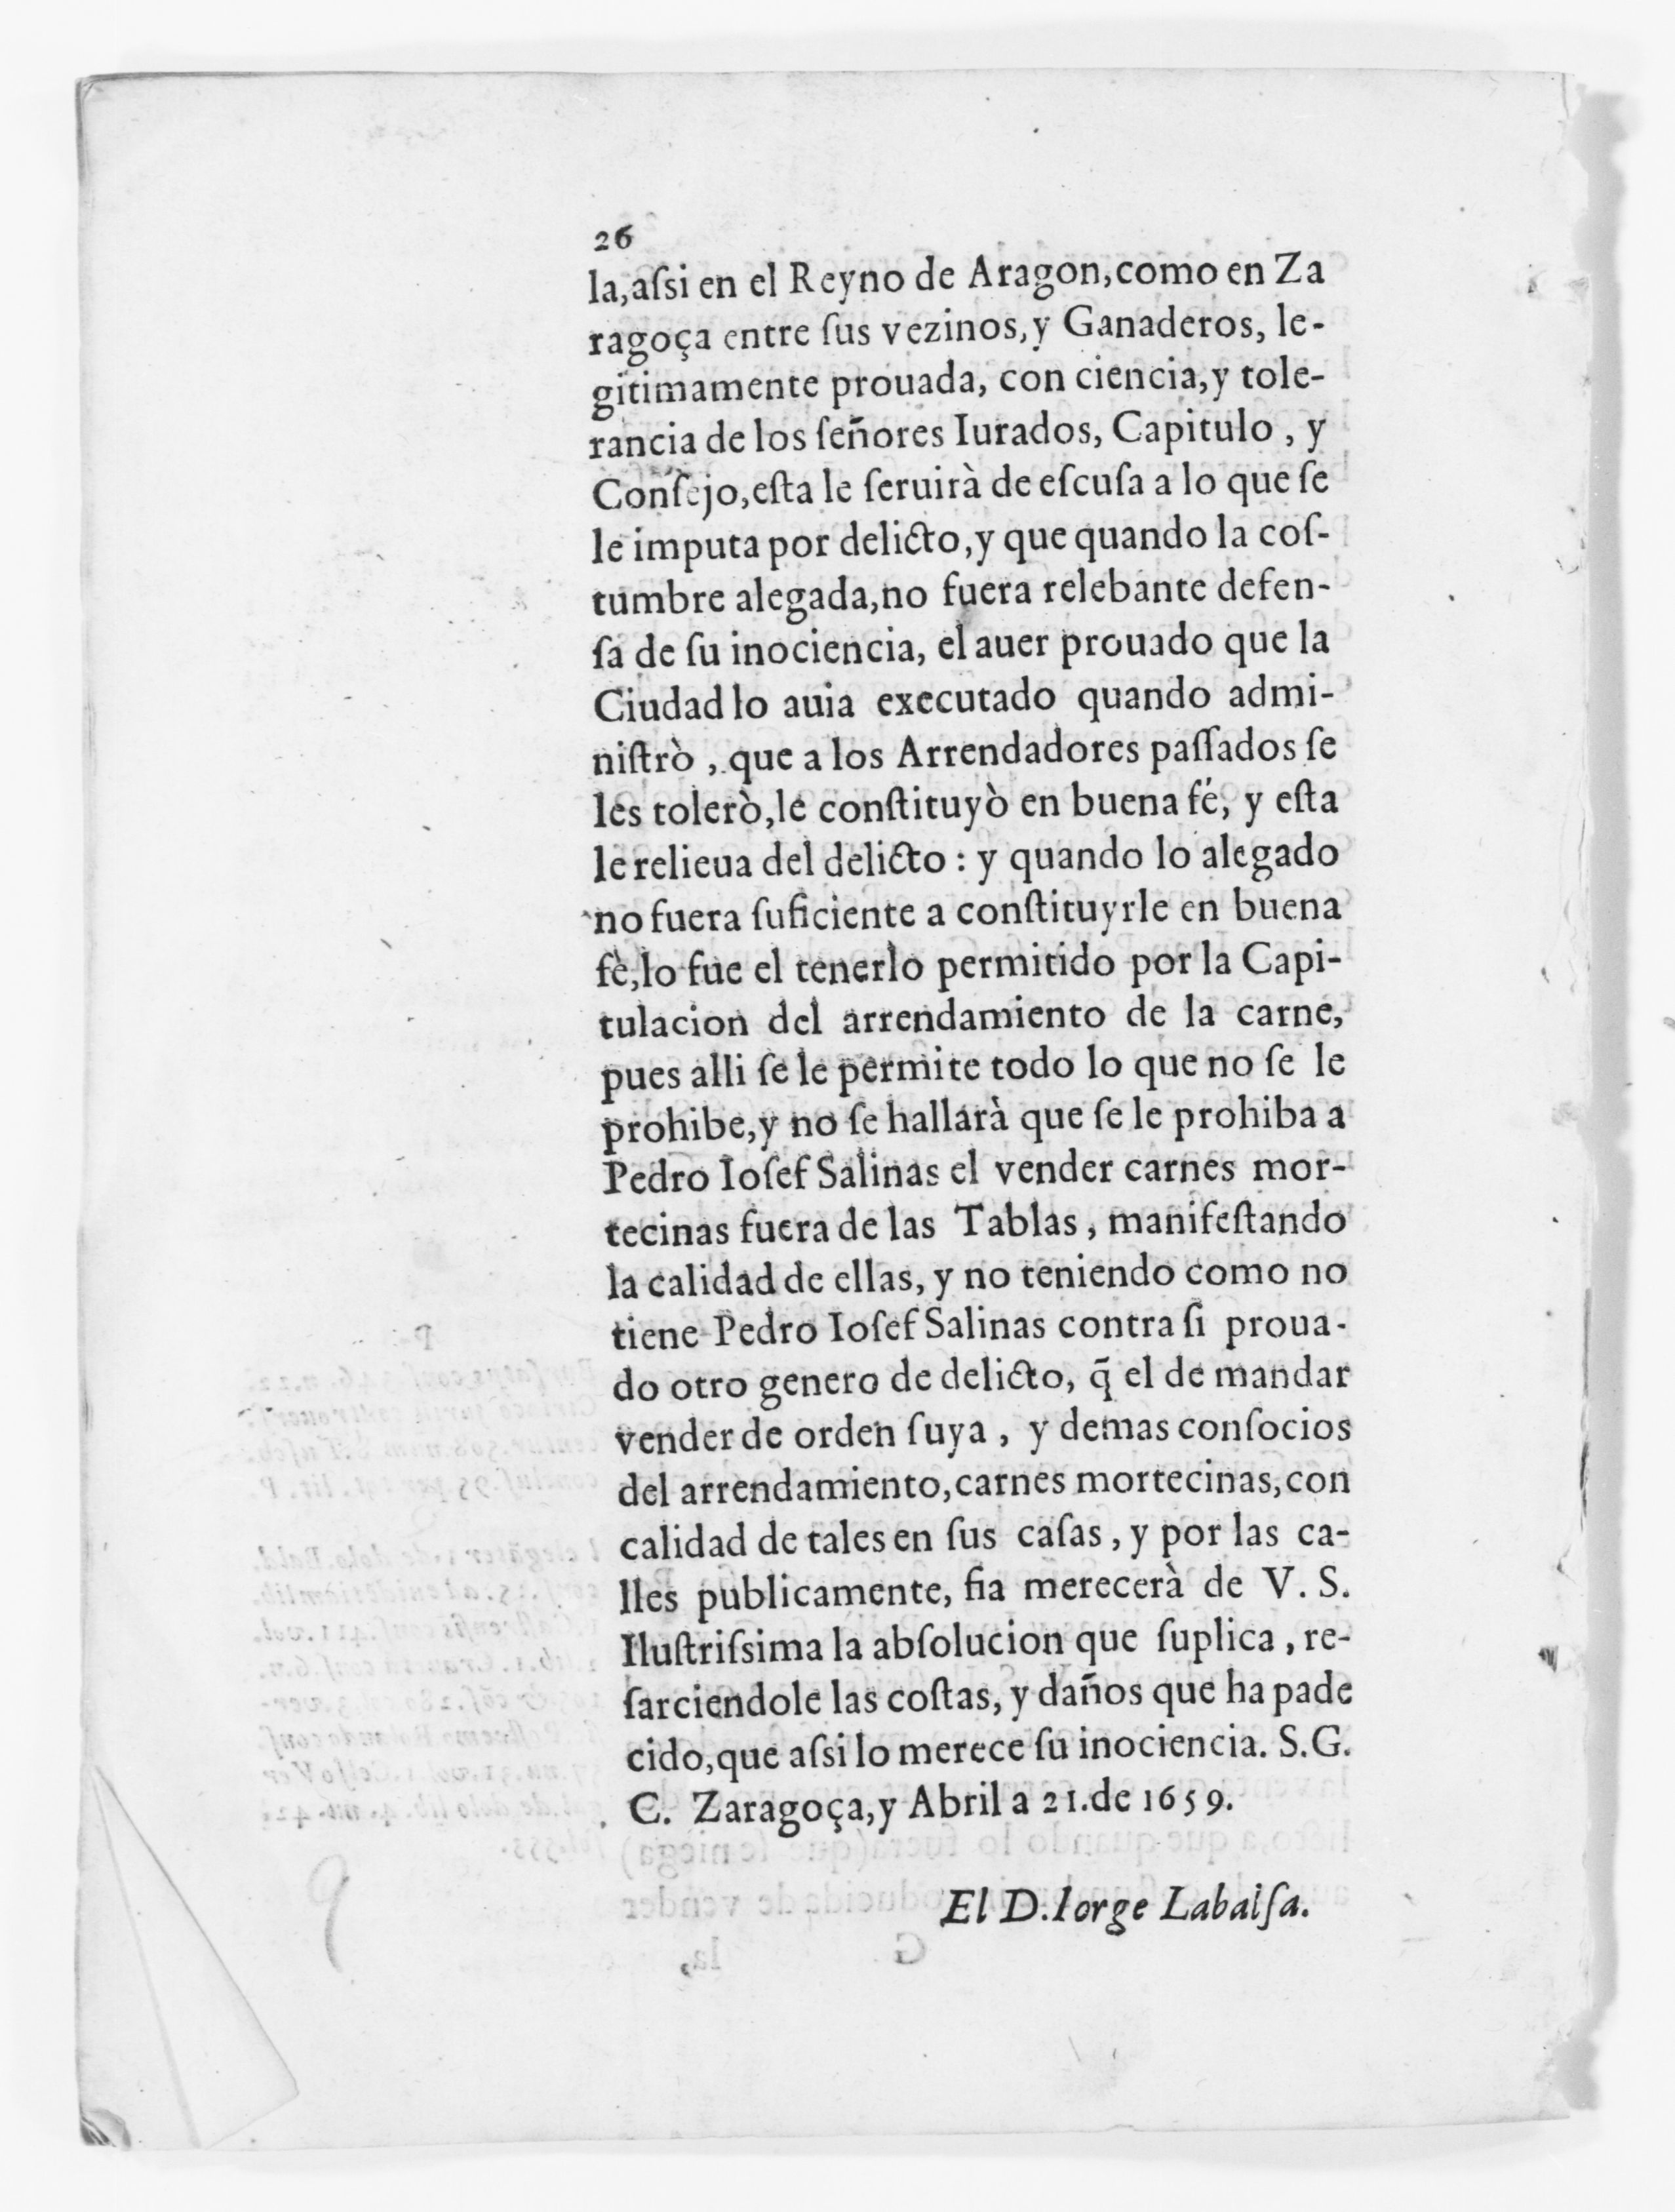 26
la,aſsi en el Reyno de Aragon,como en Za
ragoça entre ſus vezinos,y Ganaderos, le-
gitimamente prouada, con ciencia,y tole-
rancia de los ſeñores Iurados, Capitulo , y
Conſejo,eſta le ſeruirà de eſcuſa a lo que ſe
le imputa por delicto,y que quando la coſ-
tumbre alegada,no fuera relebante defen-
ſa de ſu inociencia, el auer prouado que la
Ciudad lo auia executado quando admi-
niſtrò , que a los Arrendadores paſſados ſe
les tolerò,le conſtituyò en buena fé, y eſta
le relieua del delicto : y quando lo alegado
no fuera ſuficiente a conſtituyrle en buena
fè,lo fue el tenerlo permitido por la Capi-
tulacion del arrendamiento de la carne,
pues alli ſe le permite todo lo que no ſe le
prohibe,y no ſe hallarà que ſe le prohiba a
Pedro Ioſef Salinas el vender carnes mor-
tecinas fuera de las Tablas , manifeſtando
la calidad de ellas, y no teniendo como no
tiene Pedro Ioſef Salinas contra ſi proua-
do otro genero de delicto, q̃ el de mandar
vender de orden ſuya , y demas conſocios
del arrendamiento,carnes mortecinas,con
calidad de tales en ſus caſas , y por las ca-
lles publicamente, fia merecerà de V. S.
Iluſtriſsima la abſolucion que ſuplica , re-
ſarciendole las coſtas, y daños que ha pade
cido,que aſsi lo merece ſu inociencia. S.G.
C. Zaragoça,y Abril a 21.de 1659.
El D.Iorge Labaiſa.